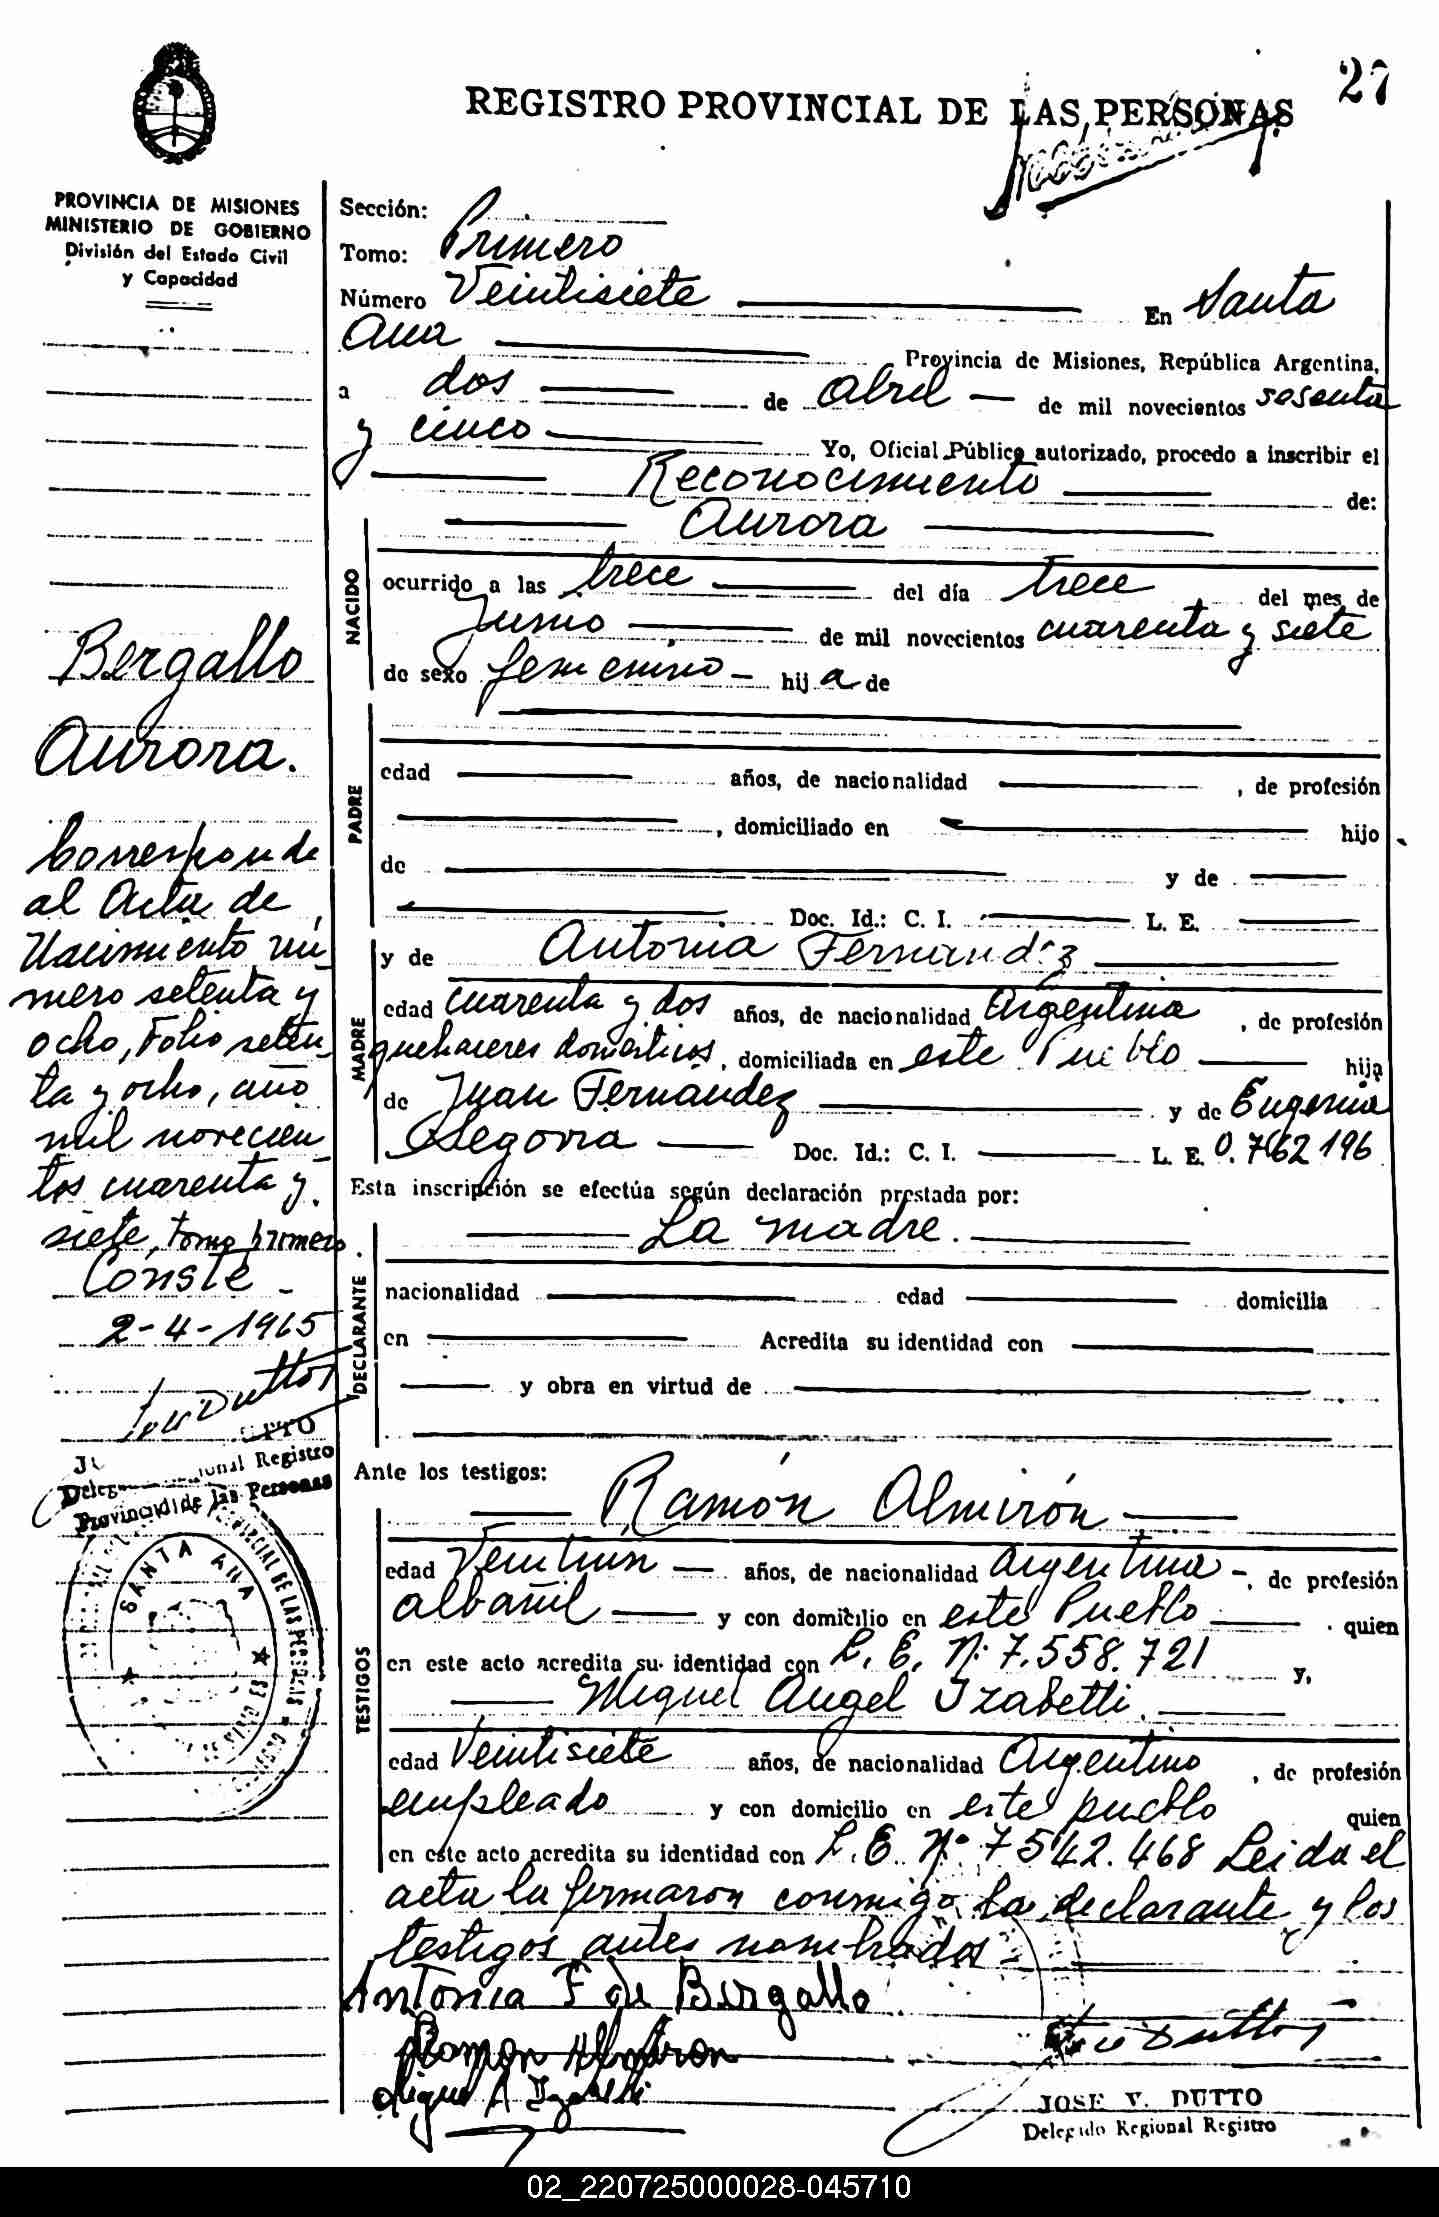 27
REGISTRO PROVINCIAL DE LAS PERSONAS
PROVINCIA DE MISIONES
MINISTERIO DE GOBIERNO
División del Estado Civil
y Capacidad
Bergallo
Aurora.
Corresponde
al Acta de
Nacimiento nú
mero setenta y
ocho, Folio seten
ta y ocho, año
mil novecien
tos cuarenta y
siete, tomo primero
Conste -
2-4-1965
Delegado Regional Registro
Provincial de las Personas
SANTA ANA
Sección:
Tomo: Primero
Número Veintisiete En Santa
Ana Provincia de Misiones, República Argentina,
a dos de abril de mil novecientos sesenta
y cinco Yo, Oficial Público autorizado, procedo a inscribir el
Reconocimiento de:
NACIDO
Aurora
ocurrido a las trece del día trece del mes de
Junio de mil novecientos cuarenta y siete
de sexo femenino - hij a de
PADRE
edad años, de nacionalidad , de profesión
, domiciliado en hijo
de y de
Doc. Id.: C. I. L. E.
MADRE
y de Antonia Fernandez
edad cuarenta y dos años, de nacionalidad Argentina , de profesión
quehaceres domésticos, domiciliada en este Pueblo hija
de Juan Fernandez y de Eugenia
Segovia Doc. Id.: C. I. L. E. 0.762196
Esta inscripción se efectúa según declaración prestada por:
DECLARANTE
La madre.
nacionalidad edad domicilia
en Acredita su identidad con
y obra en virtud de
Ante los testigos:
TESTIGOS
Ramón Almirón
edad Veintiun años, de nacionalidad Argentina -, de profesión
albañil y con domicilio en este Pueblo quien
en este acto acredita su identidad con L. E. N° 7.558.721 y,
Miguel Angel Izabetti.
edad Veintisiete años, de nacionalidad Argentino , de profesión
empleado y con domicilio en este pueblo quien
en este acto acredita su identidad con L. E. N° 7542.468 Leida el
acta la firmaron conmigo, la declarante y los
testigos antes nombrados -
Antonia F de Bergallo
Ramon Almiron
Miguel A Izabetti
JOSE V. DUTTO
Delegado Regional Registro
02_220725000028-045710